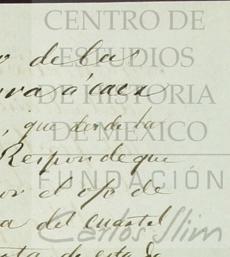 CENTRO DE
ESTUDIOS
DE HISTORIA
DE MEXICO
FUNDACIÓN
Carlos Slim
o de la
á caer
, que desde la
Responde que
or el ofo de
a del cuartel